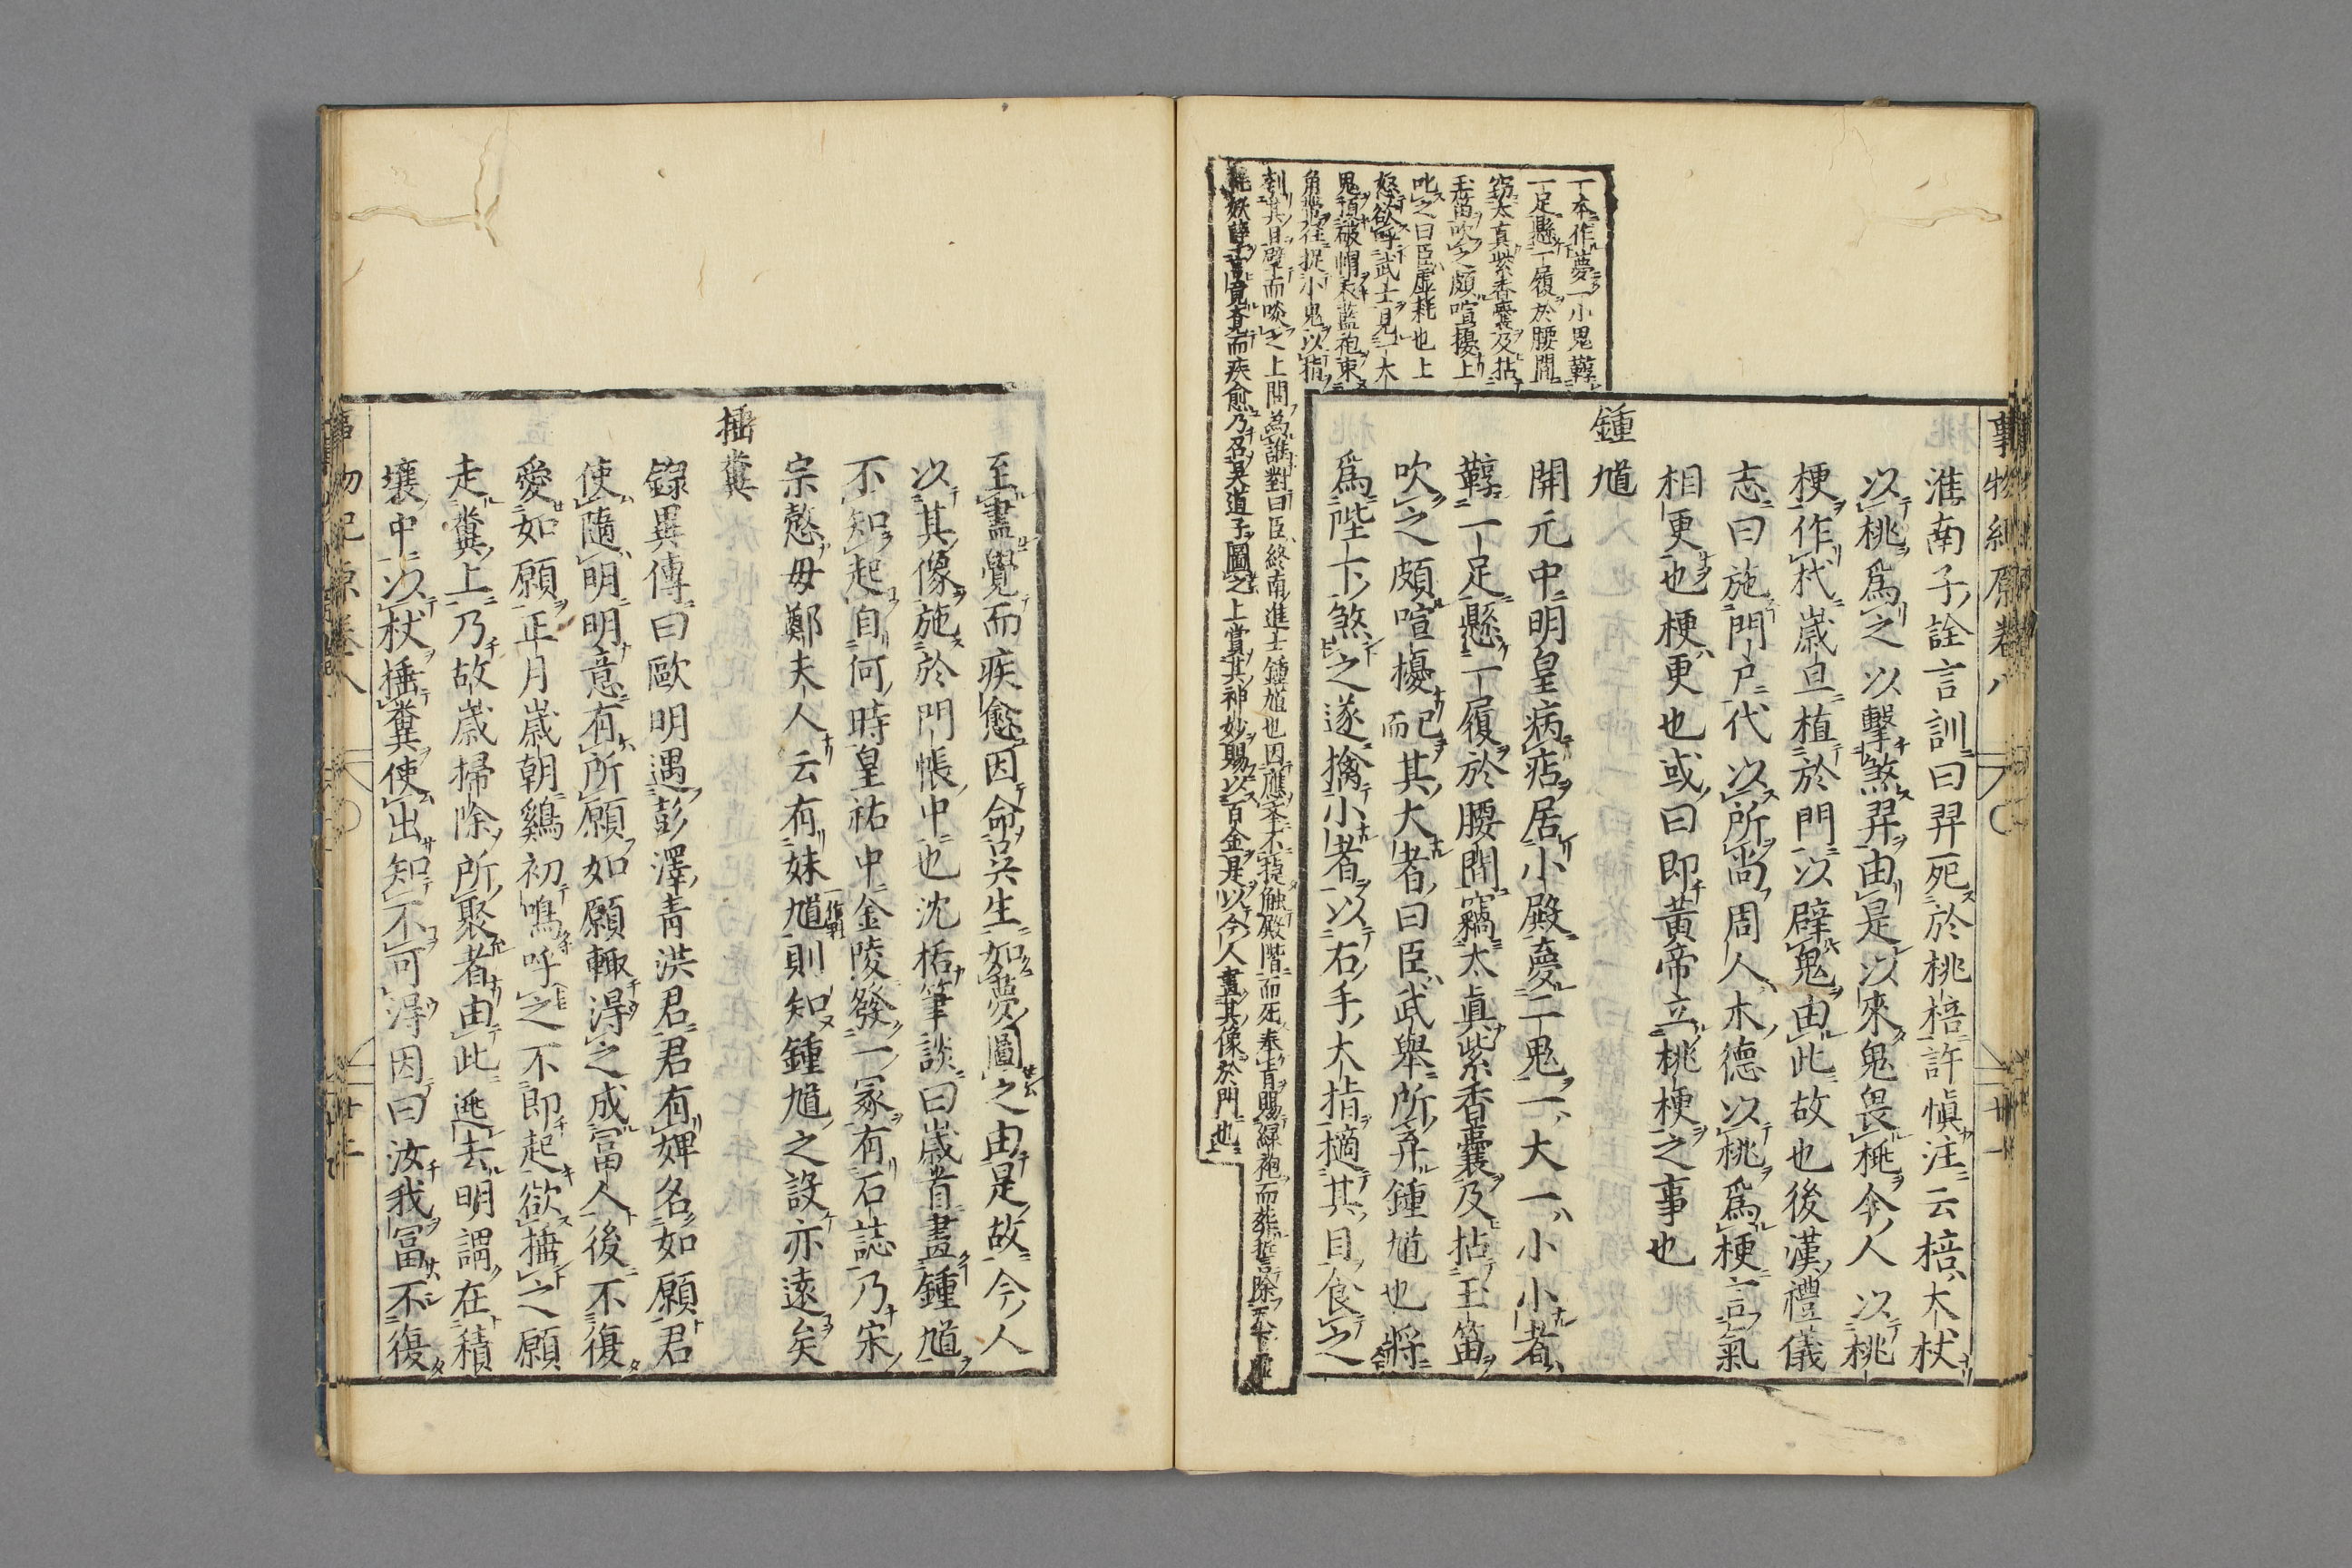 事物紀原卷八
淮南子詮言訓曰羿死於桃棓許愼注云棓大杖
以桃爲之以擊煞羿由是以來鬼畏桃今人以桃
梗作杙歲旦植於門以辟鬼由此故也後漢禮儀
志曰施門戶代以所尚周人木德以桃爲梗言氣
相更也梗更也或曰即黃帝立桃梗之事也
鍾馗
開元中明皇病痁居小殿夢二鬼一大一小小者
鞟一足懸一履於腰間竊太眞紫香囊及拈玉笛
吹之頗喧擾而配其大者曰臣武舉所弃鍾馗也將
爲陛下煞之遂擒小者以右手大指擿其目食之
一本作夢一小鬼鞟
一足懸一履於腰間
窃太真紫香囊及拈
玉笛吹之頗喧擾上
叱之曰臣虛耗也上
怒欲呼武士見一大
鬼頂破帽衣藍袍束
角帶徑捉小鬼以指
刳其目劈而啖之上問爲誰對曰臣終南進士鍾馗也因應举不捷触殿階而死奉旨賜綠袍而葬誓言除天下虛
耗妖孽言覔竟而疾愈乃召吳道子圖之上賞其神妙賜以百金是以今人畫其像於門也
至晝覺而疾愈因命吳生如夢圖之由是故今人
以其像施於門帳中也沈栝筆談曰歲首畫鍾馗
不知起自何時皇祐中金陵發一冢有石誌乃宋
宗愨母鄭夫人云有妹馗則知鍾馗之設亦遠矣
捶糞
錄異傳曰歐明遇彭澤靑洪君君有婢名如願君
使隨明明意有所願如願輙得之成冨人後不復
愛如願正月歲朝鷄初鳴呼之不即起欲捶之願
走糞上乃故歲掃除所聚者由此逃去明謂在積
壤中以杖捶糞使出知不可得因曰汝我冨不復
事物紀原卷八